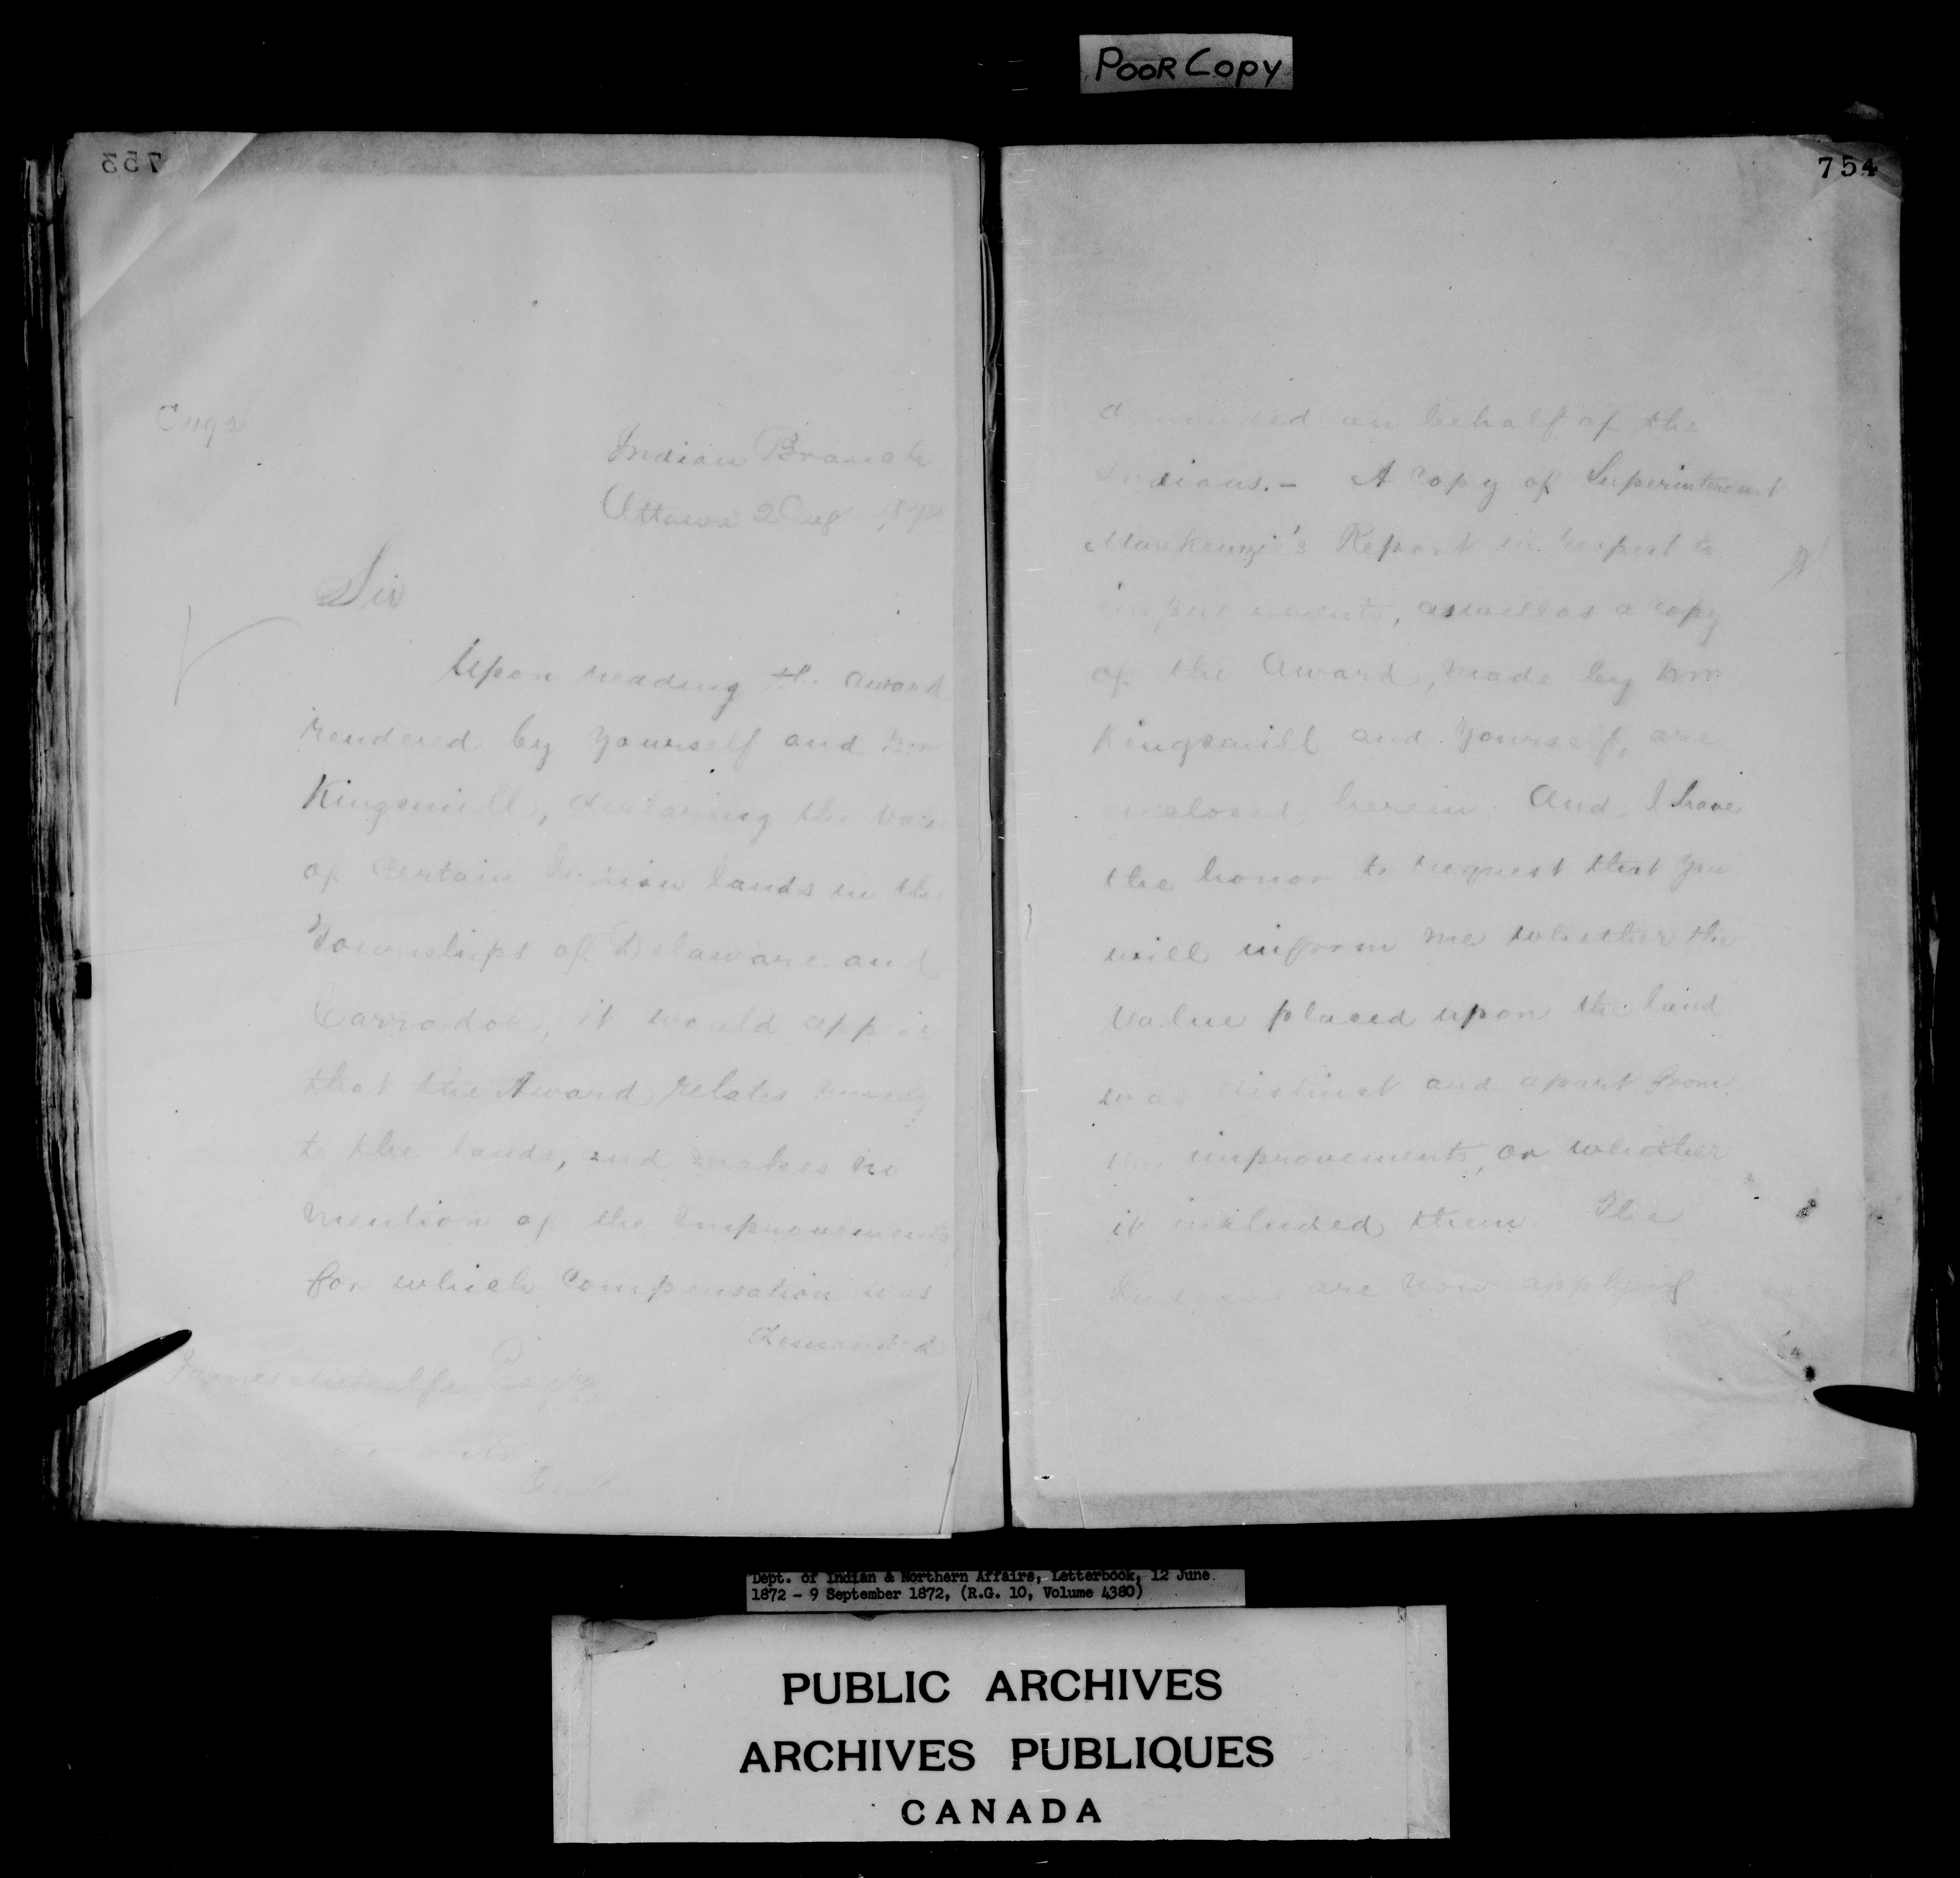 POOR COPY
753
Indian Branch
Ottawa 2 Aug 1872
Sir
Upon reading the award
rendered by yourself and Mr
Kingsmill, declaring the value
of Certain Indian lands in the
Townships of Delaware and
Carradoc, it would appear
that the Award relates merely
to the lands, and makes no
mention of the Improvements
for which Compensation was
demanded
James Metcalfe Esqre
Toronto
754
demanded on behalf of the
Indians. - A copy of Superintendent
Mackenzie's Report in respect to
improvements, as well as a copy
of the Award, made by Mr
Kingsmill and Yourself, are
enclosed herein. And I have
the honor to request that you
will inform me whether the
value placed upon the land
was distinct and apart from
the improvements, or whether
it included them The
Indians are now applying
Dept. of Indian & Northern Affairs, Letterbook, 12 June
1872 - 9 September 1872, (R.G. 10, Volume 4380)
PUBLIC ARCHIVES
ARCHIVES PUBLIQUES
CANADA